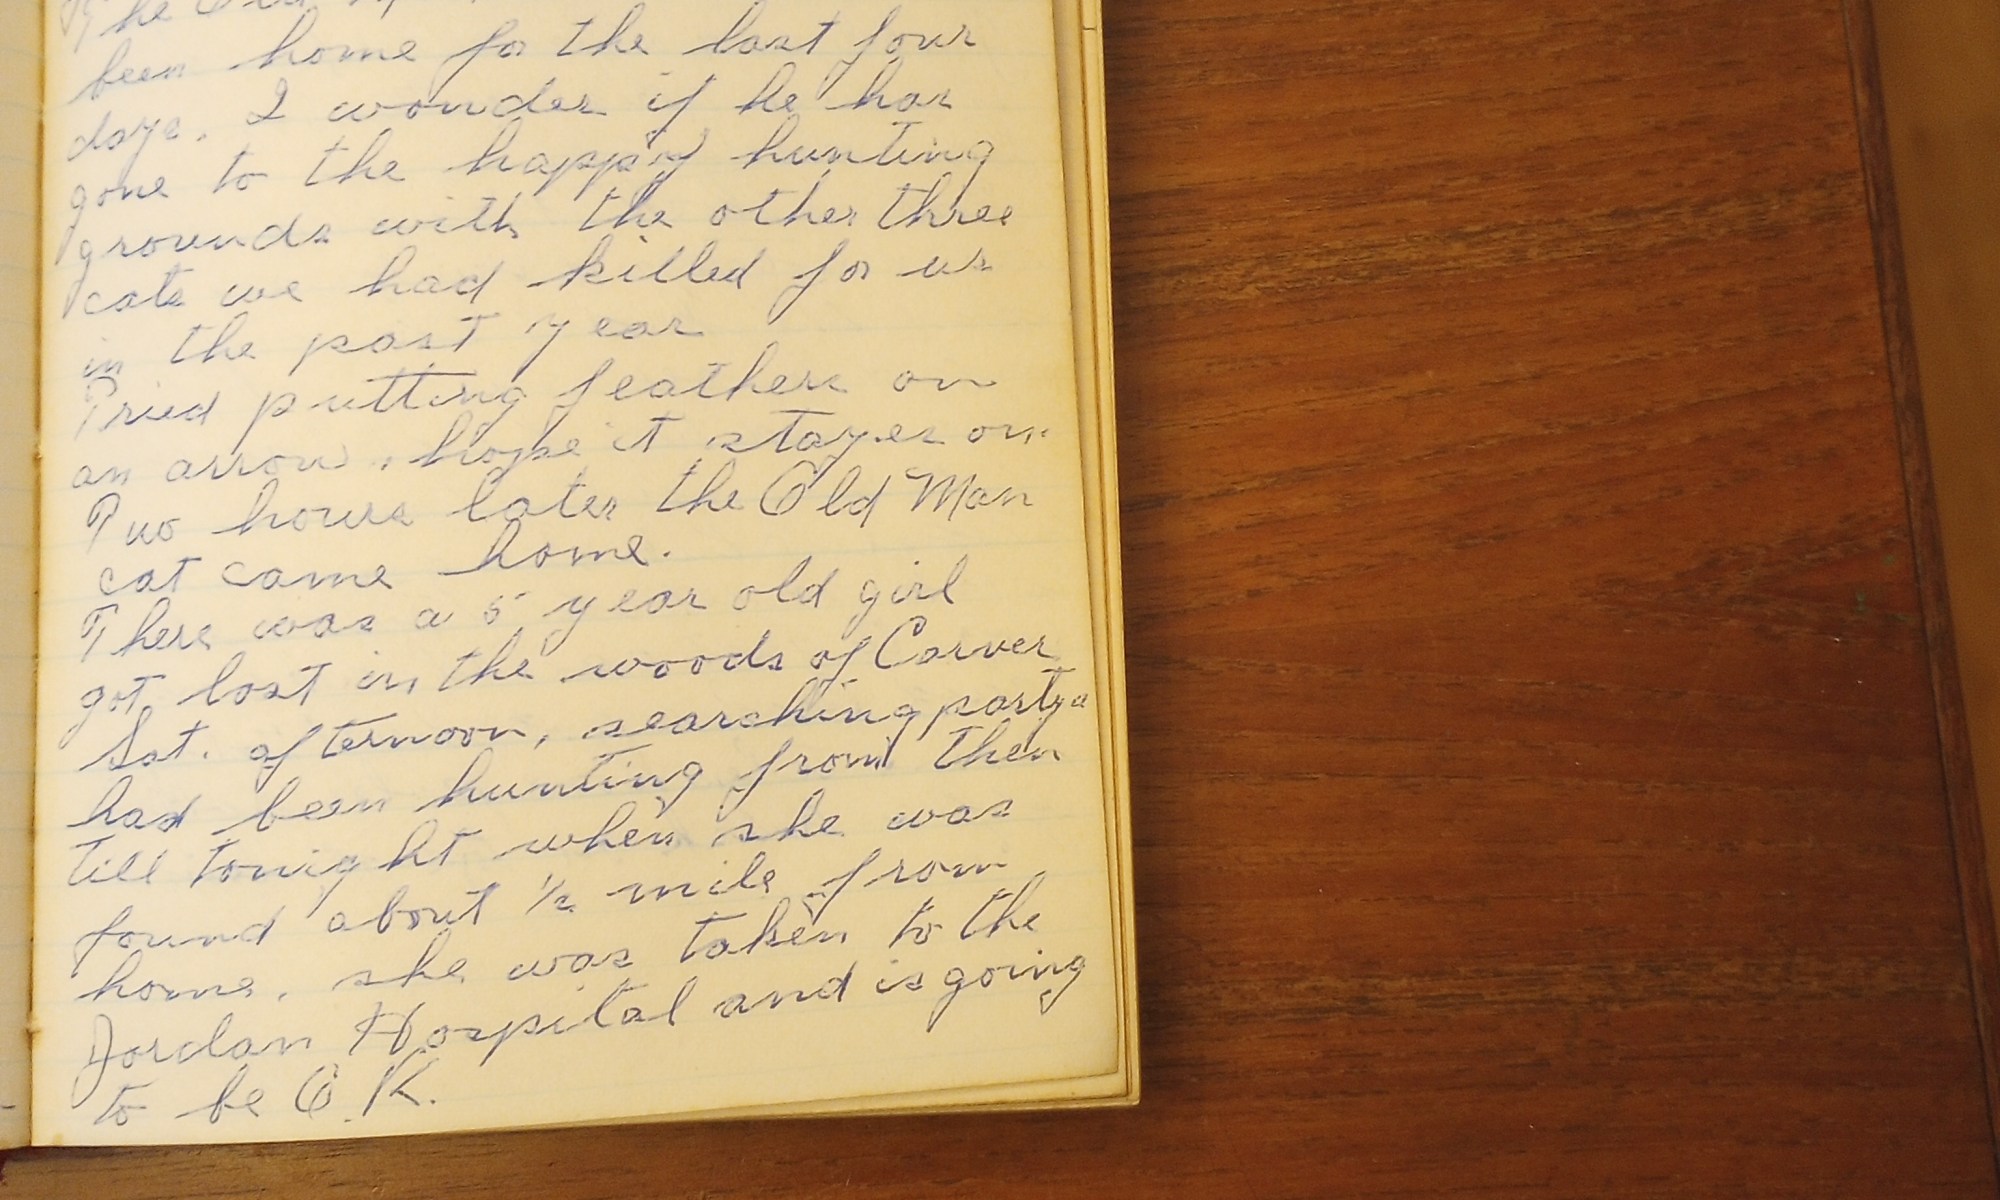 The Old
been home for the last four
days. I wonder if he has
gone to the happy hunting
grounds with the other three
cats we had killed for us
in the past year
Tried putting feathers on
an arrow, hope it stayes on.
Two hours later the Old Man
cat came home.
There was a 5 year old girl
got lost in the woods of Carver
Sat. afternoon, searching partys
had been hunting from then
till tonight when she was
found about 1/2 mile from
home. she was taken to the
Jordan Hospital and is going
to be O.K.